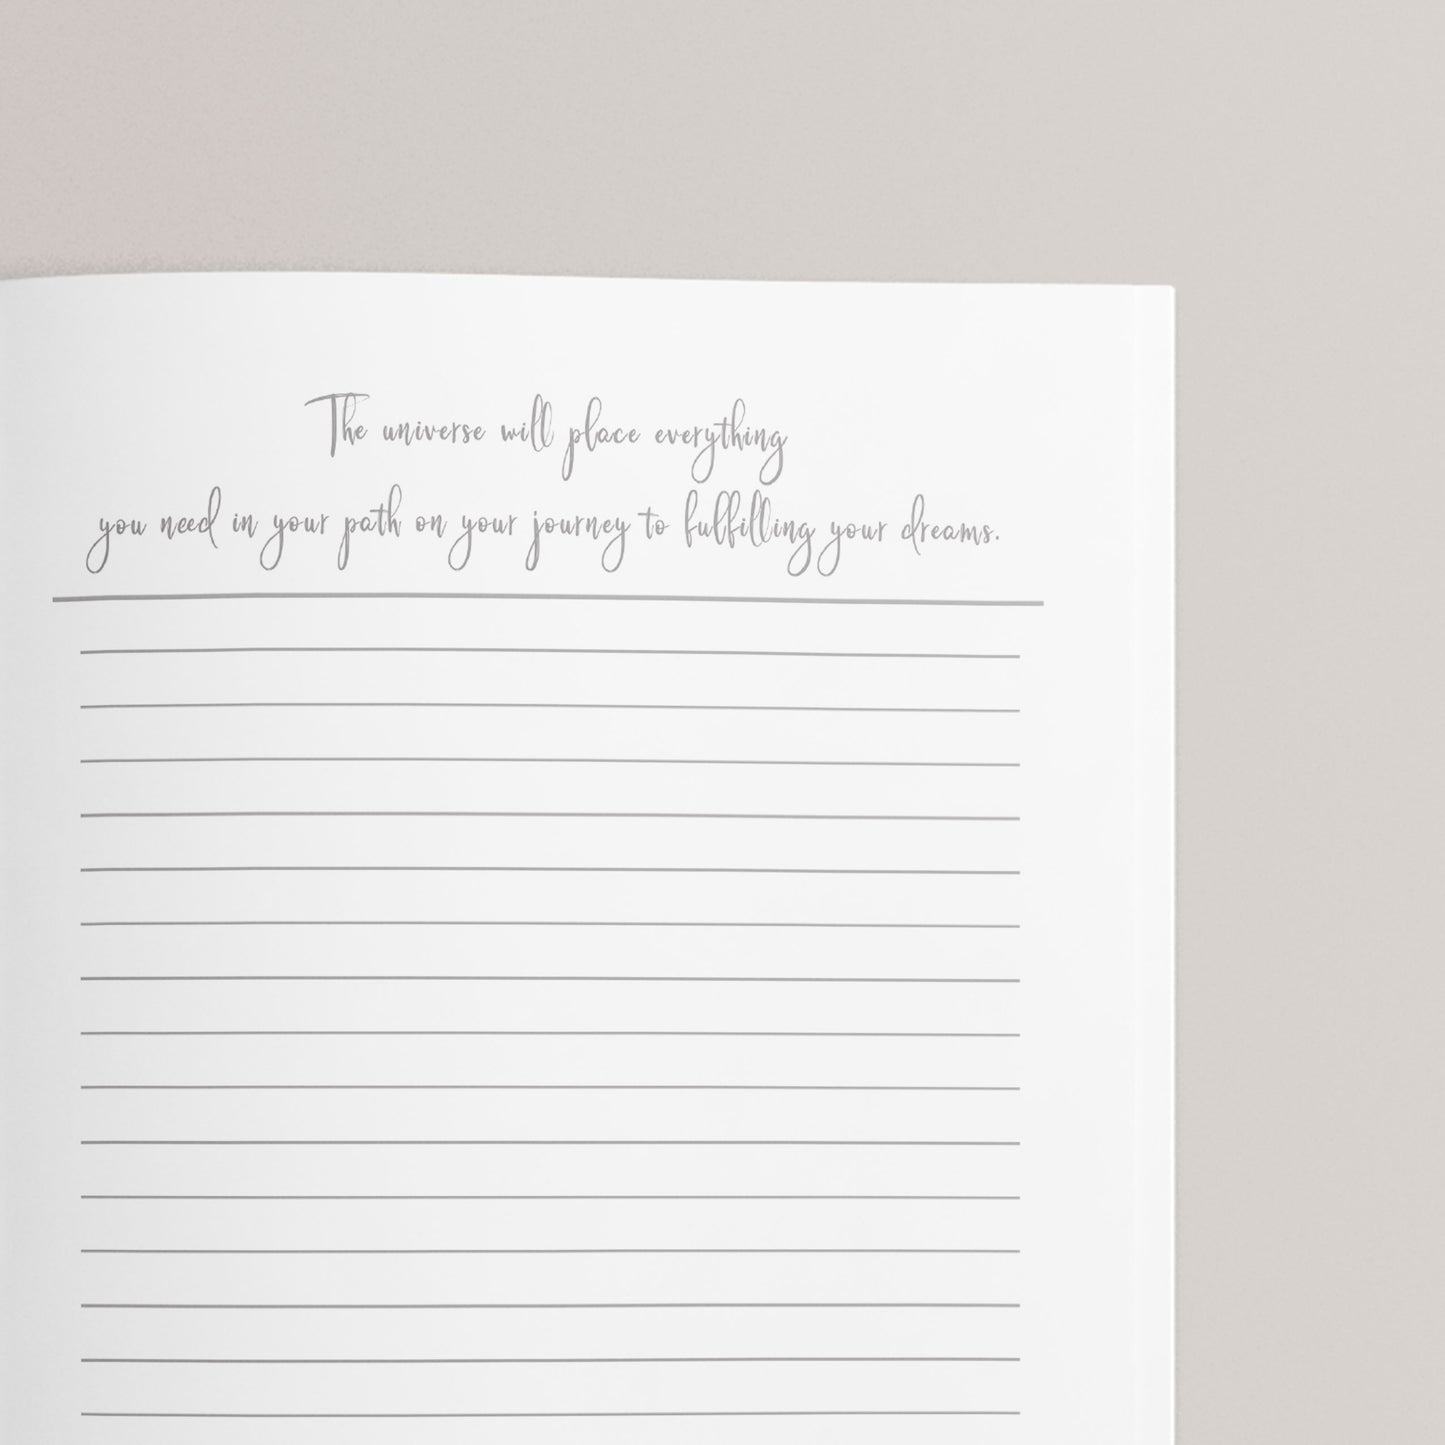 The universe will place everything
you need in your path on your journey to fulfilling your dreams.